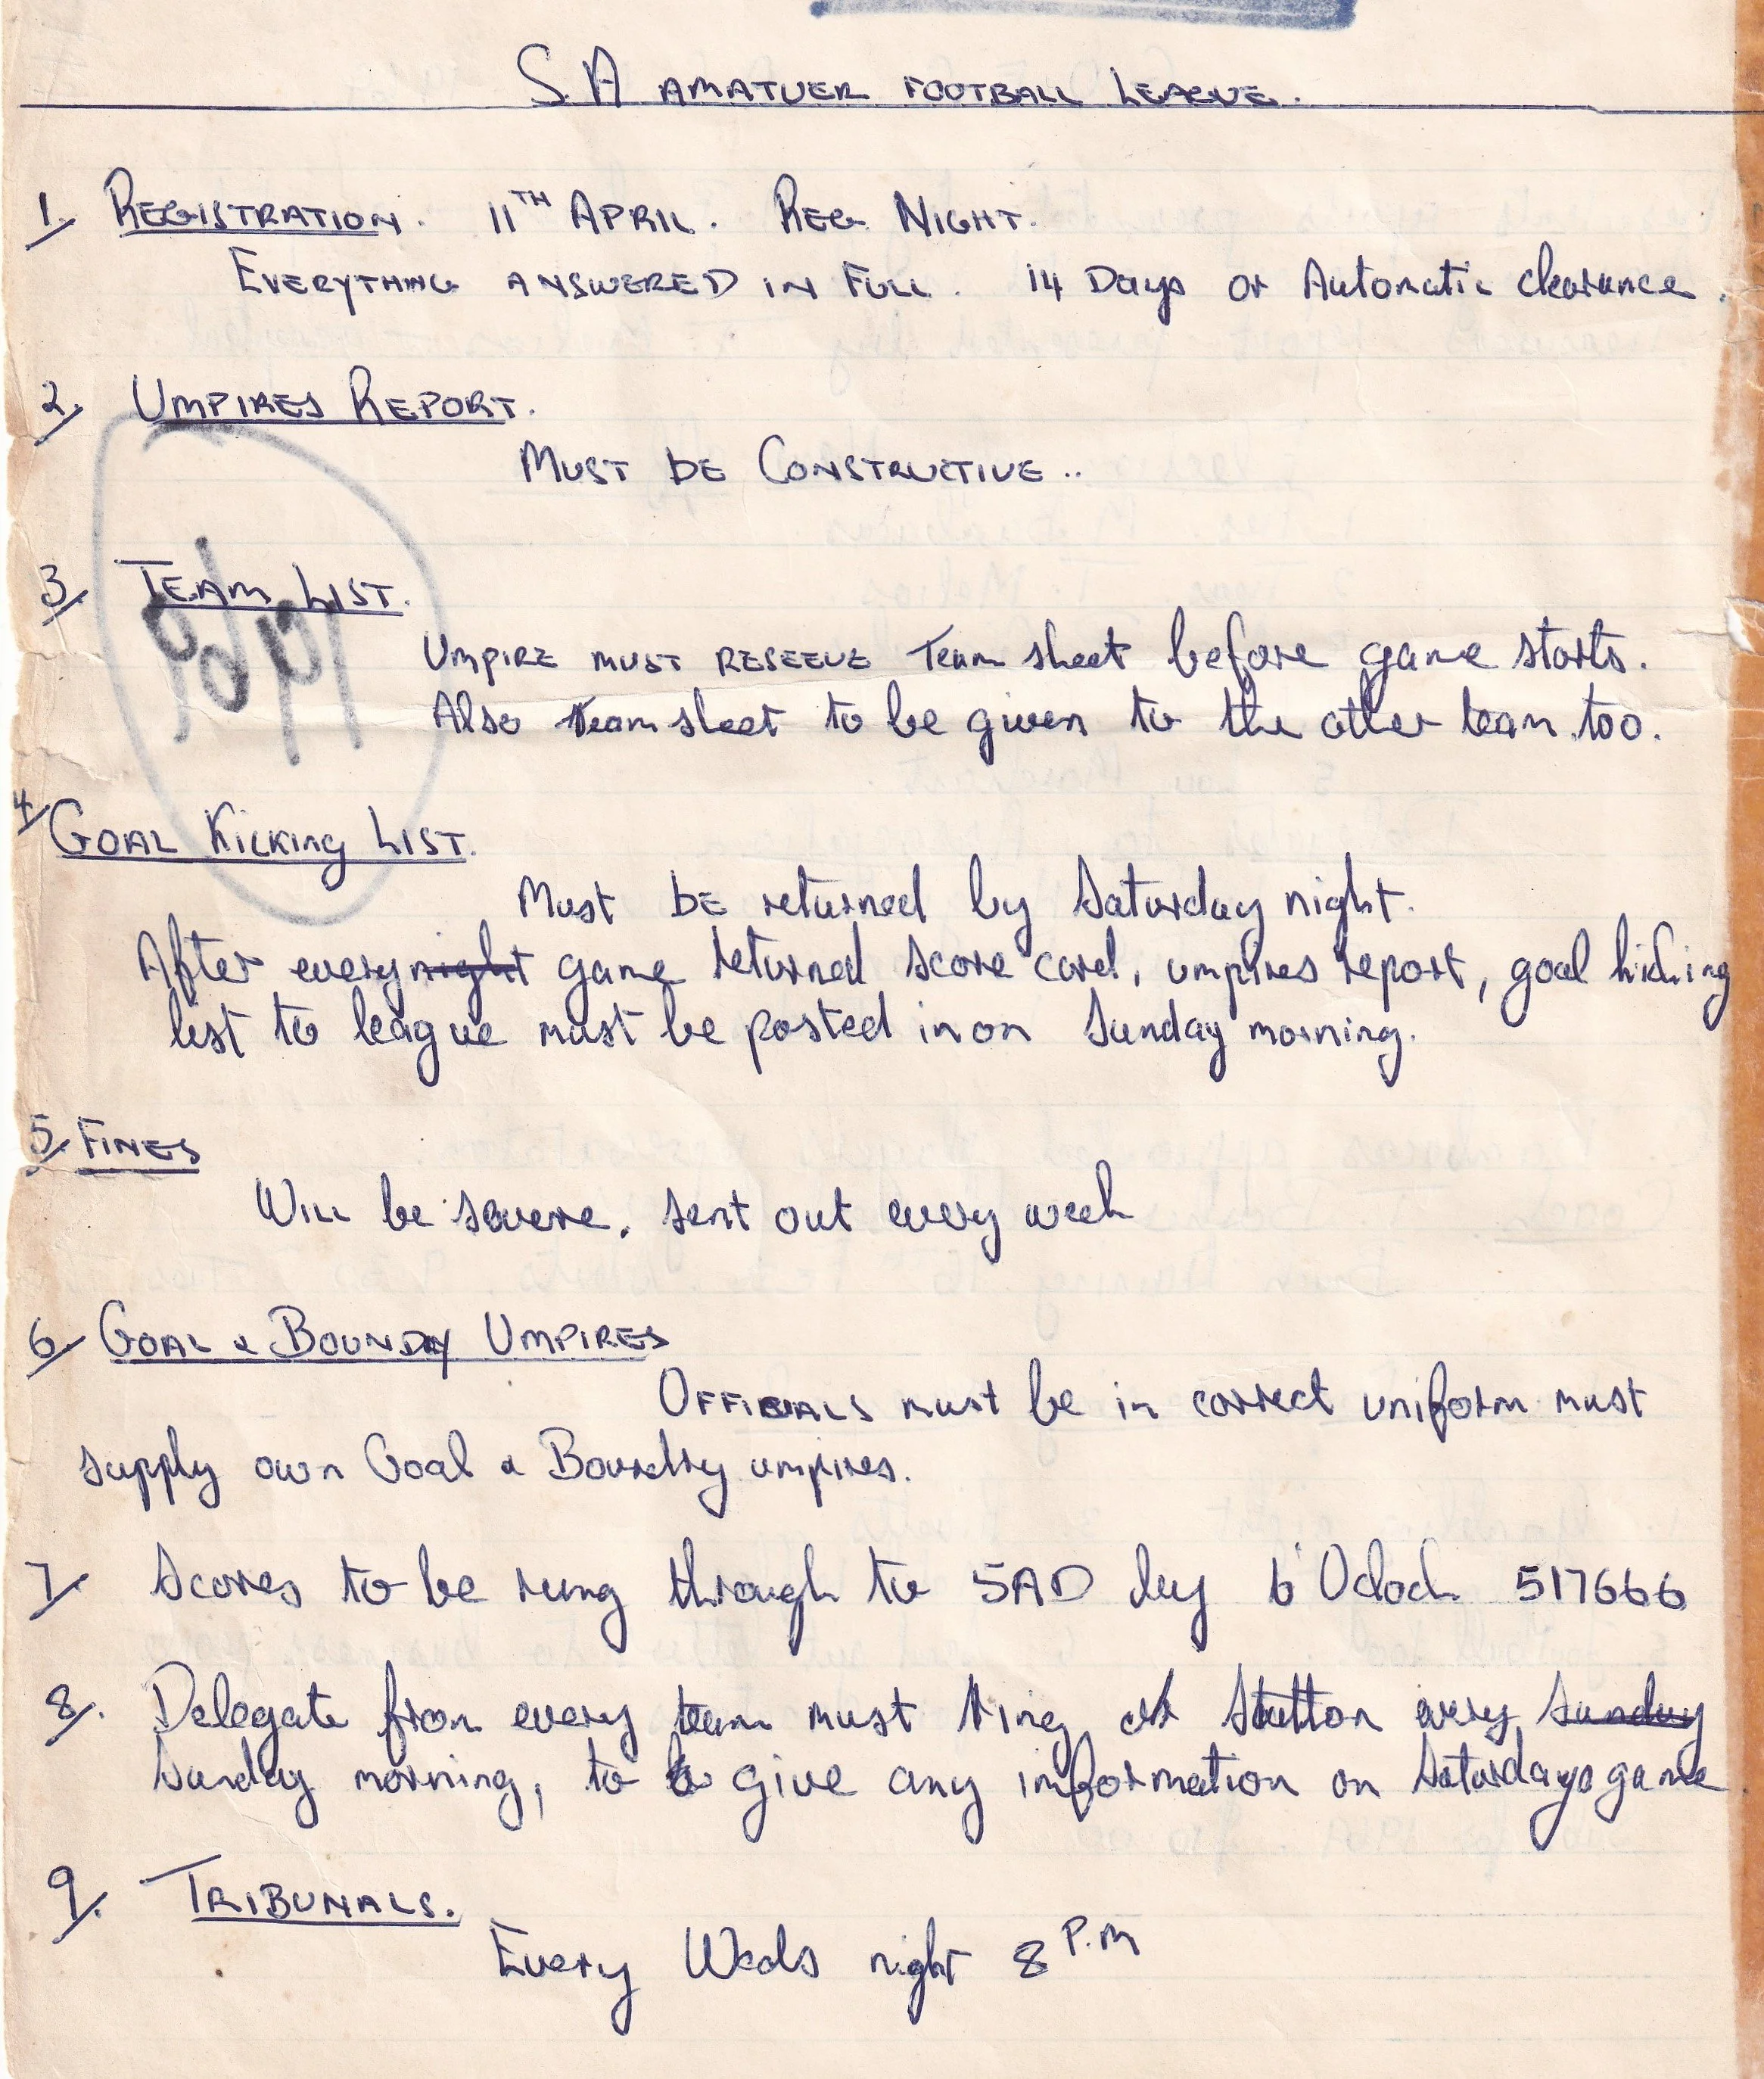 S A AMATUER FOOTBALL LEAGUE.
1/ REGISTRATION. 11TH APRIL. REG. NIGHT.
EVERYTHING ANSWERED IN FULL. 14 Days or Automatic clearance.
2/ UMPIRES REPORT.
MUST BE CONSTRUCTIVE..
3/ TEAM LIST.
UMPIRE MUST RESEEVE Team sheet before game starts.
Also team sheet to be given to the other team too.
4/ GOAL KICKING LIST.
Must BE returned by Saturday night.
After every night game returned score card, umpires report, goal kicking
list to league must be posted in on Sunday morning.
5/ FINES
WILL be severe. sent out every week
6/ GOAL & BOUNDRY UMPIRES
OFFICIALS must be in correct uniform must
supply own Goal & Boundry umpires.
7/. Scores to be rung through to 5AD by 6 Oclock 517666
8/. Delegate from every team must ring Stutton every Sunday
Sunday morning, to give any information on Saturdays game
9/. TRIBUNALS.
Every Weds night 8 P.M